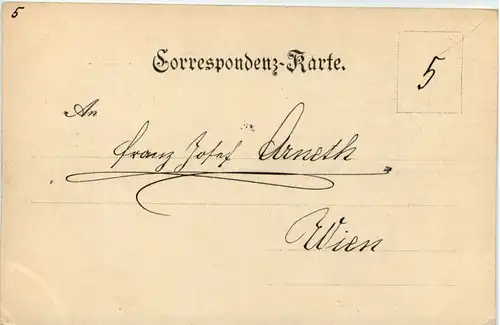 5
Correspondenz-Karte.
5
An
Franz Josef Arneth
Wien